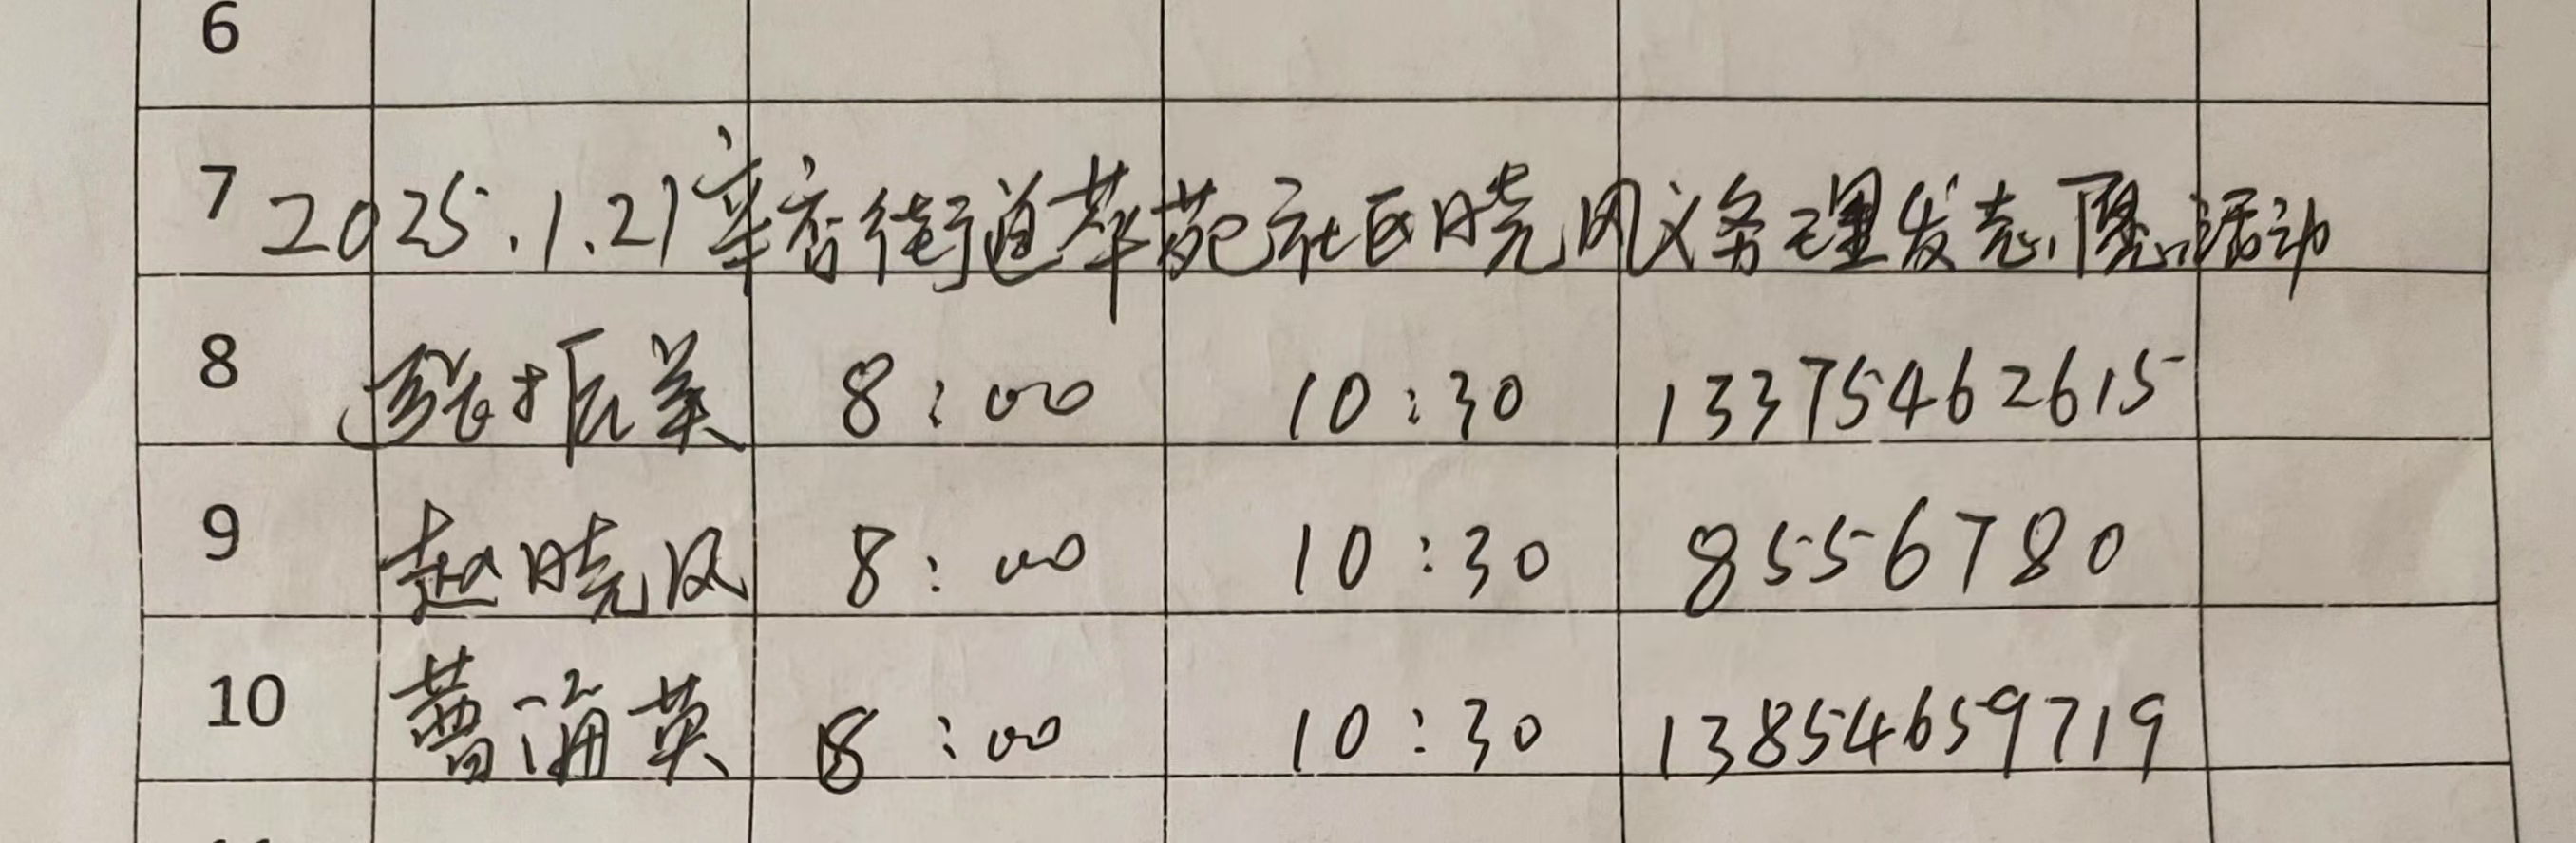 6
7 2025.1.21辛店街道萃苑社区晓风义务理发志愿活动
8 张振美 8:00 10:30 13375462615
9 赵晓风 8:00 10:30 8556780
10 海英 8:00 10:30 13854659719